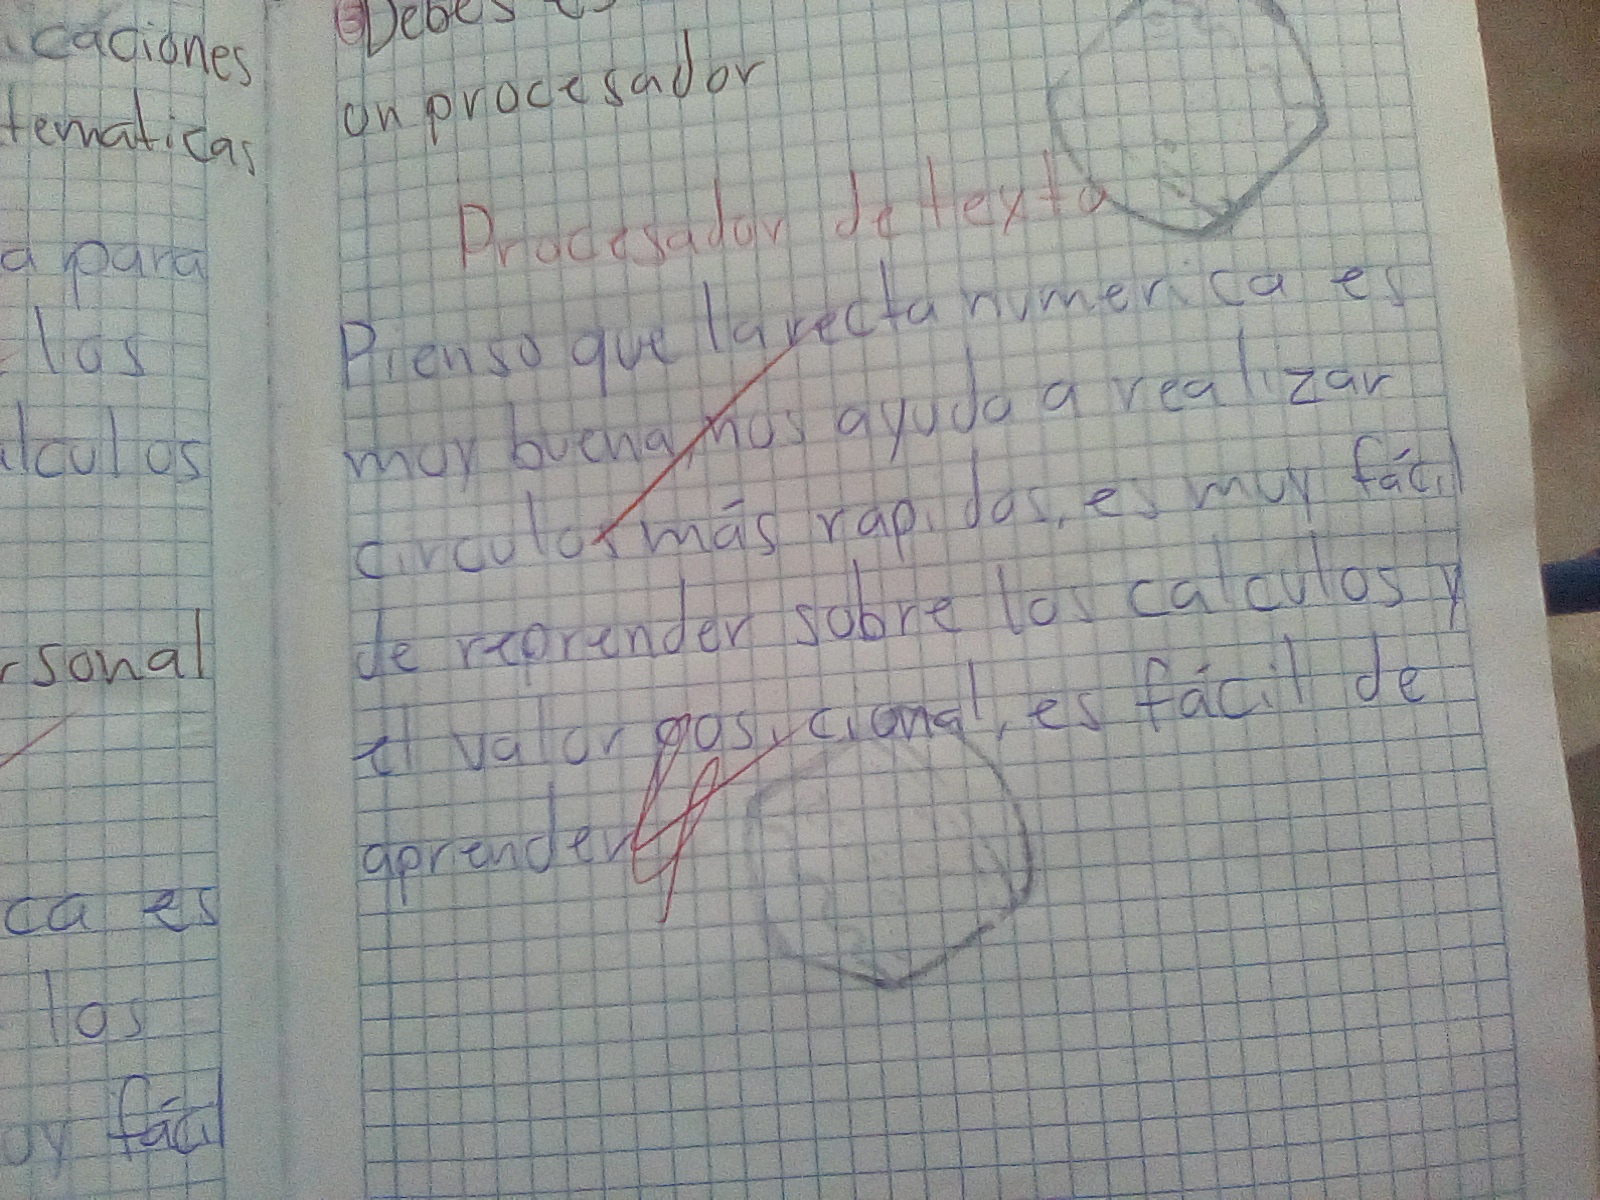 caciones
tematicas
a para
los
lculos
rsonal
ca es
los
oy fácil
Debes
un procesador
Procesador de texto
Pienso que la recta numerica es
muy buena, nos ayuda a realizar
circulos más rapidos, es muy fácil
de reprender sobre los calculos y
el valor posicional, es fácil de
aprender